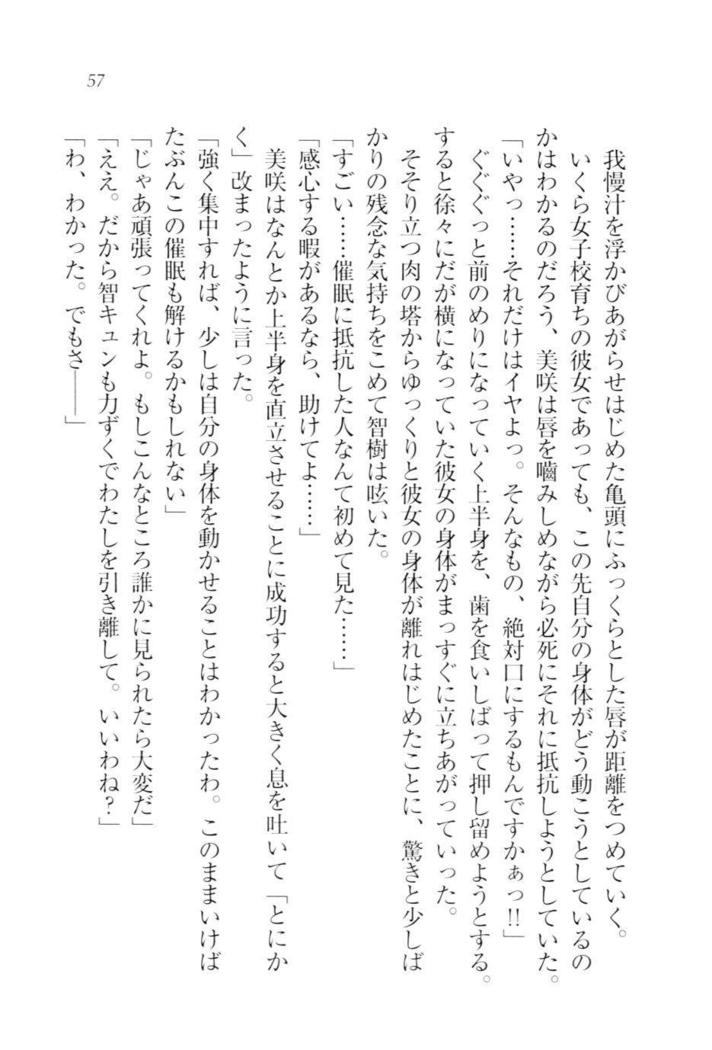 57
我慢汁を浮かびあがらせはじめた亀頭にふっくらとした唇が距離をつめていく。
いくら女子校育ちの彼女であっても、この先自分の身体がどう動こうとしているの
かはわかるのだろう、美咲は唇を嚙みしめながら必死にそれに抵抗しようとしていた。
「いやっ……それだけはイヤよっ。そんなもの、絶対口にするもんですかぁっ!!」
ぐぐぐっと前のめりになっていく上半身を、歯を食いしばって押し留めようとする。
すると徐々にだが横になっていた彼女の身体がまっすぐに立ちあがっていった。
そそり立つ肉の塔からゆっくりと彼女の身体が離れはじめたことに、驚きと少しば
かりの残念な気持ちをこめて智樹は呟いた。
「すごい……催眠に抵抗した人なんて初めて見た……」
「感心する暇があるなら、助けてよ……」
美咲はなんとか上半身を直立させることに成功すると大きく息を吐いて「とにか
く」改まったように言った。
「強く集中すれば、少しは自分の身体を動かせることはわかったわ。このままいけば
たぶんこの催眠も解けるかもしれない」
「じゃあ頑張ってくれよ。もしこんなところ誰かに見られたら大変だ」
「ええ。だから智キュンも力ずくでわたしを引き離して。いいわね?」
「わ、わかった。でもさ――」